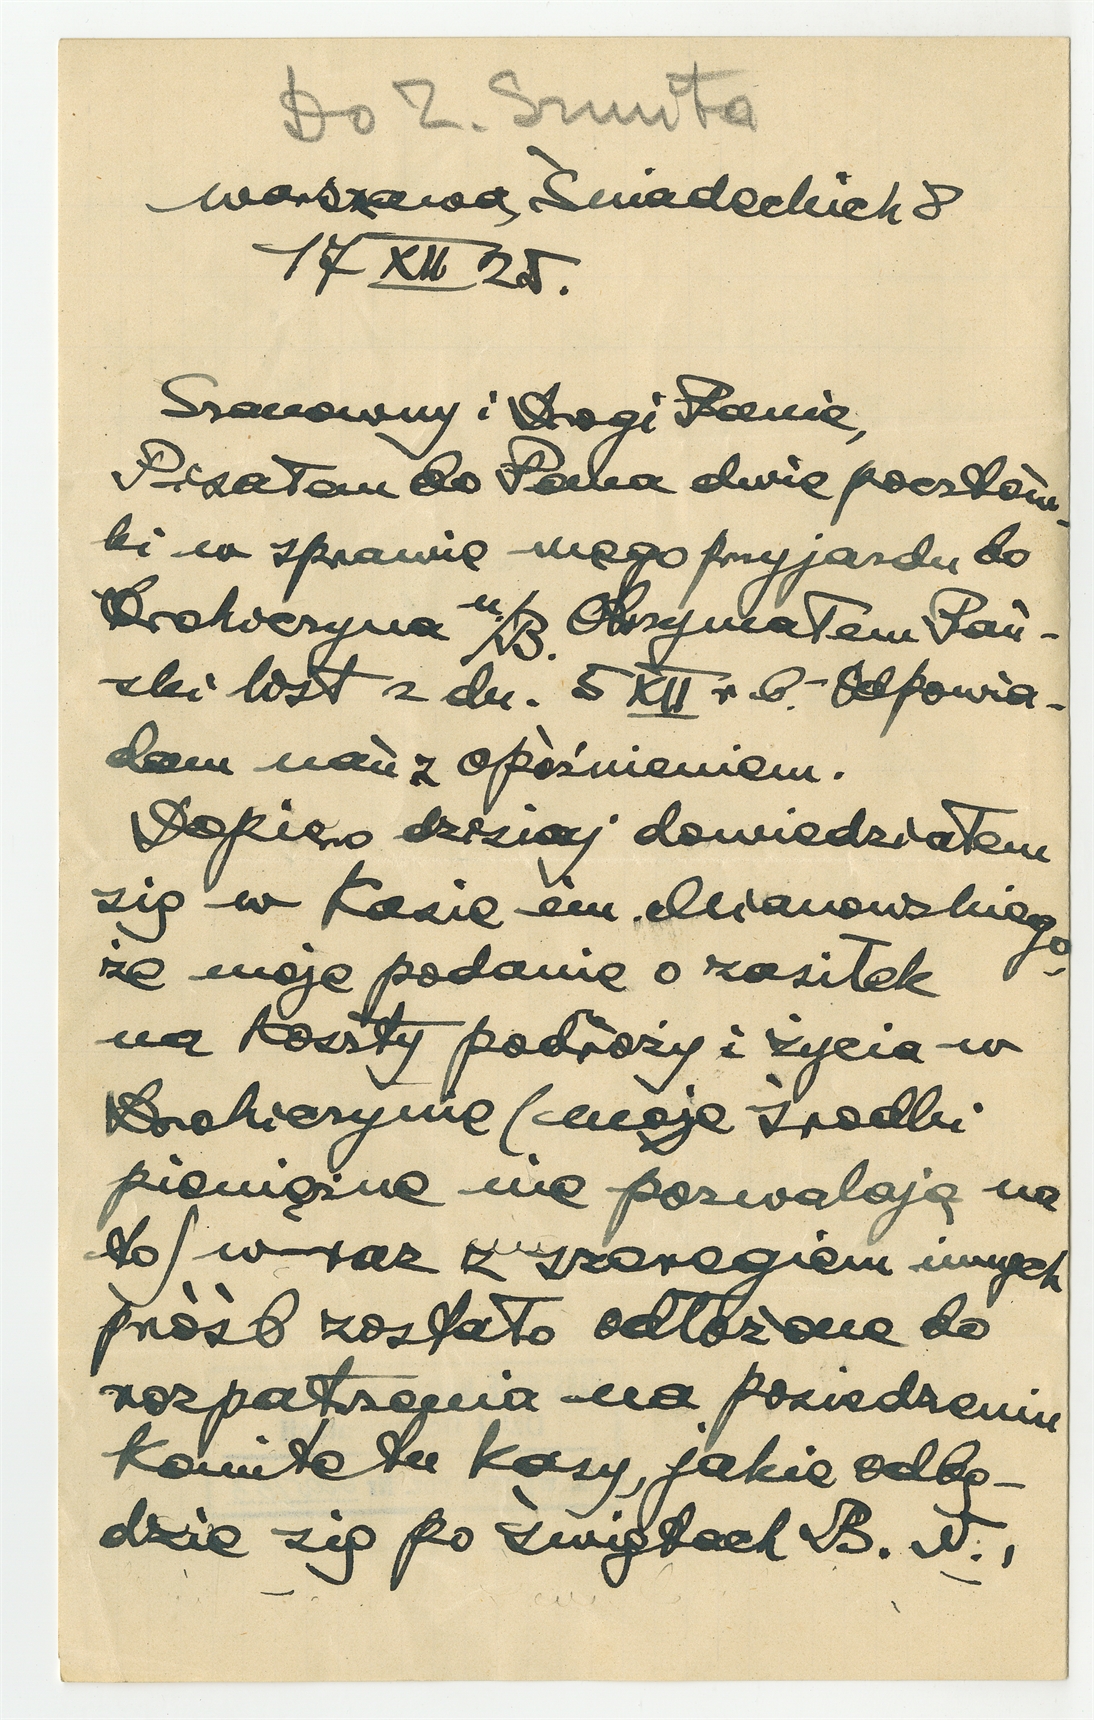 Do Z. Szmita
Warszawa, Śniadeckich 8
17 XII 25.
Szanowny i Drogi Panie,
Pisałem do Pana dwie pocztów-
ki w sprawie mego przyjazdu do
Drohiczyna n/B. Otrzymałem Pań-
ski list z dn. 5 XII r. b. - Odpowia-
dam nań z opóźnieniem.
Dopiero dzisiaj dowiedziałem
się w Kasie im. Mianowskiego,
że moje podanie o zasiłek
na koszty podróży i życia w
Drohiczynie (moje środki
pieniężne nie pozwalają na
to) w raz z szeregiem innych
próśb zostało odłożone do
rozpatrzenia na posiedzeniu
Komitetu Kasy, jakie odbę-
dzie się po świętach B. N.,